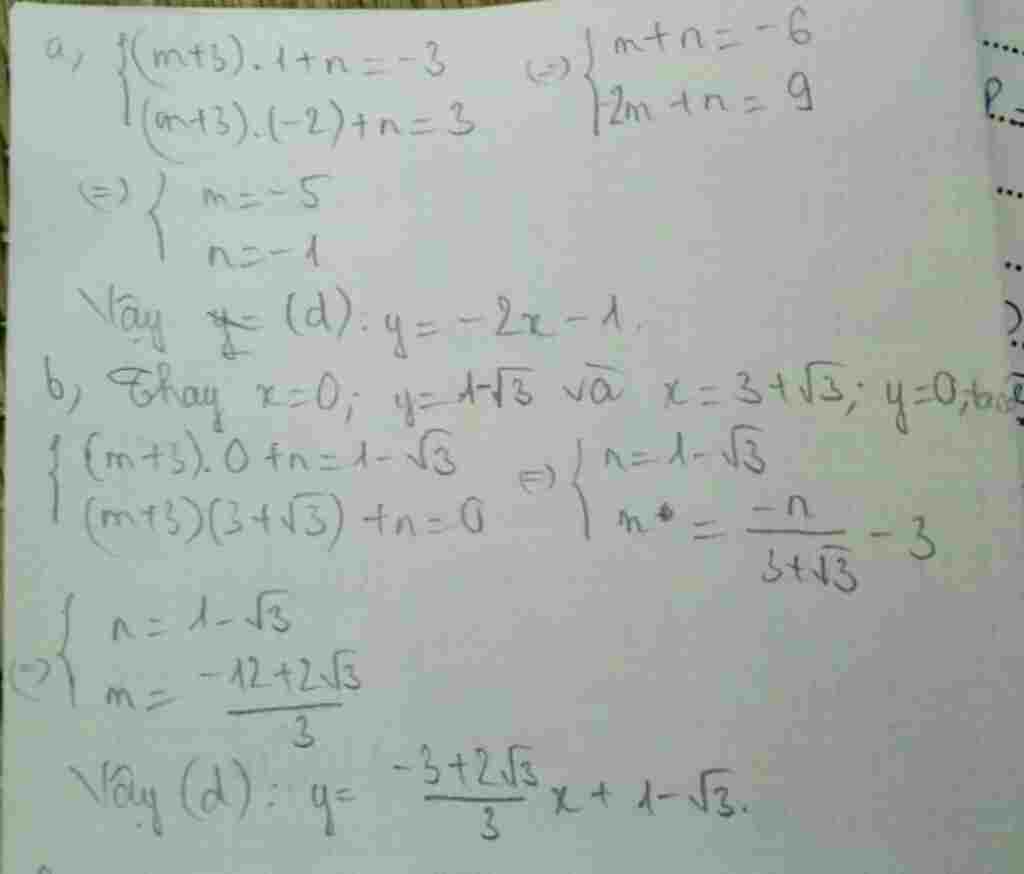 a, { (m+3).1+n=-3 (=) { m+n=-6
(m+3).(-2)+n=3 -2m+n=9
(=) { m=-5
n=-1
Vậy (d): y=-2x-1.
b, Thay x=0; y=1-√3 và x=3+√3; y=0, ta
{ (m+3).0+n=1-√3 (=) { n=1-√3
(m+3)(3+√3)+n=0 m = -n/(3+√3) - 3
(=) { n=1-√3
m= (-12+2√3)/3
Vậy (d): y= (-3+2√3)/3 x+1-√3.